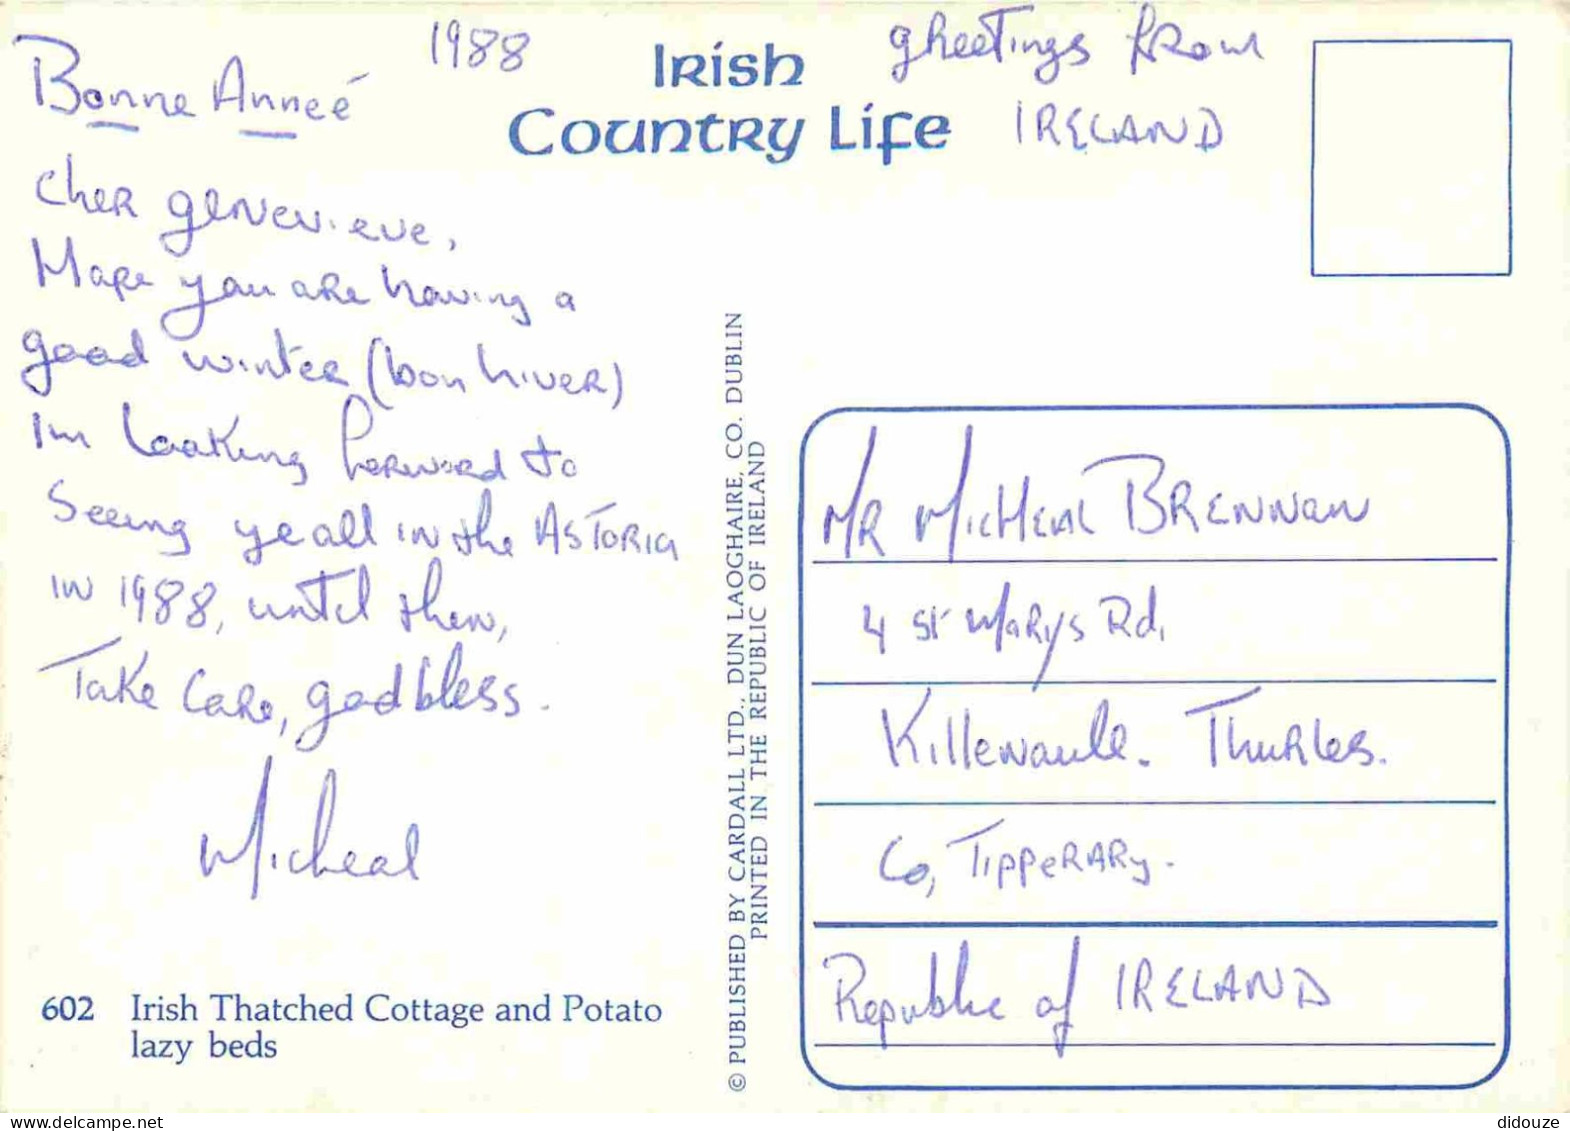 Bonne Anneé
1988
Irish
Country Life
greetings from
IRELAND
Cher genevieve,
Hope you are having a
good winter (bon hiver)
Im looking forward to
Seeing ye all in the ASTORIA
in 1988, until then,
Take Care, god bless.
Micheal
602 Irish Thatched Cottage and Potato
lazy beds
© PUBLISHED BY CARDALL LTD., DUN LAOGHAIRE, CO. DUBLIN
PRINTED IN THE REPUBLIC OF IRELAND
MR MICHEAL BRENNAN
4 St Marys Rd,
Killenaule. Thurles.
Co, TIPPERARy.
Republic of IRELAND
didouze